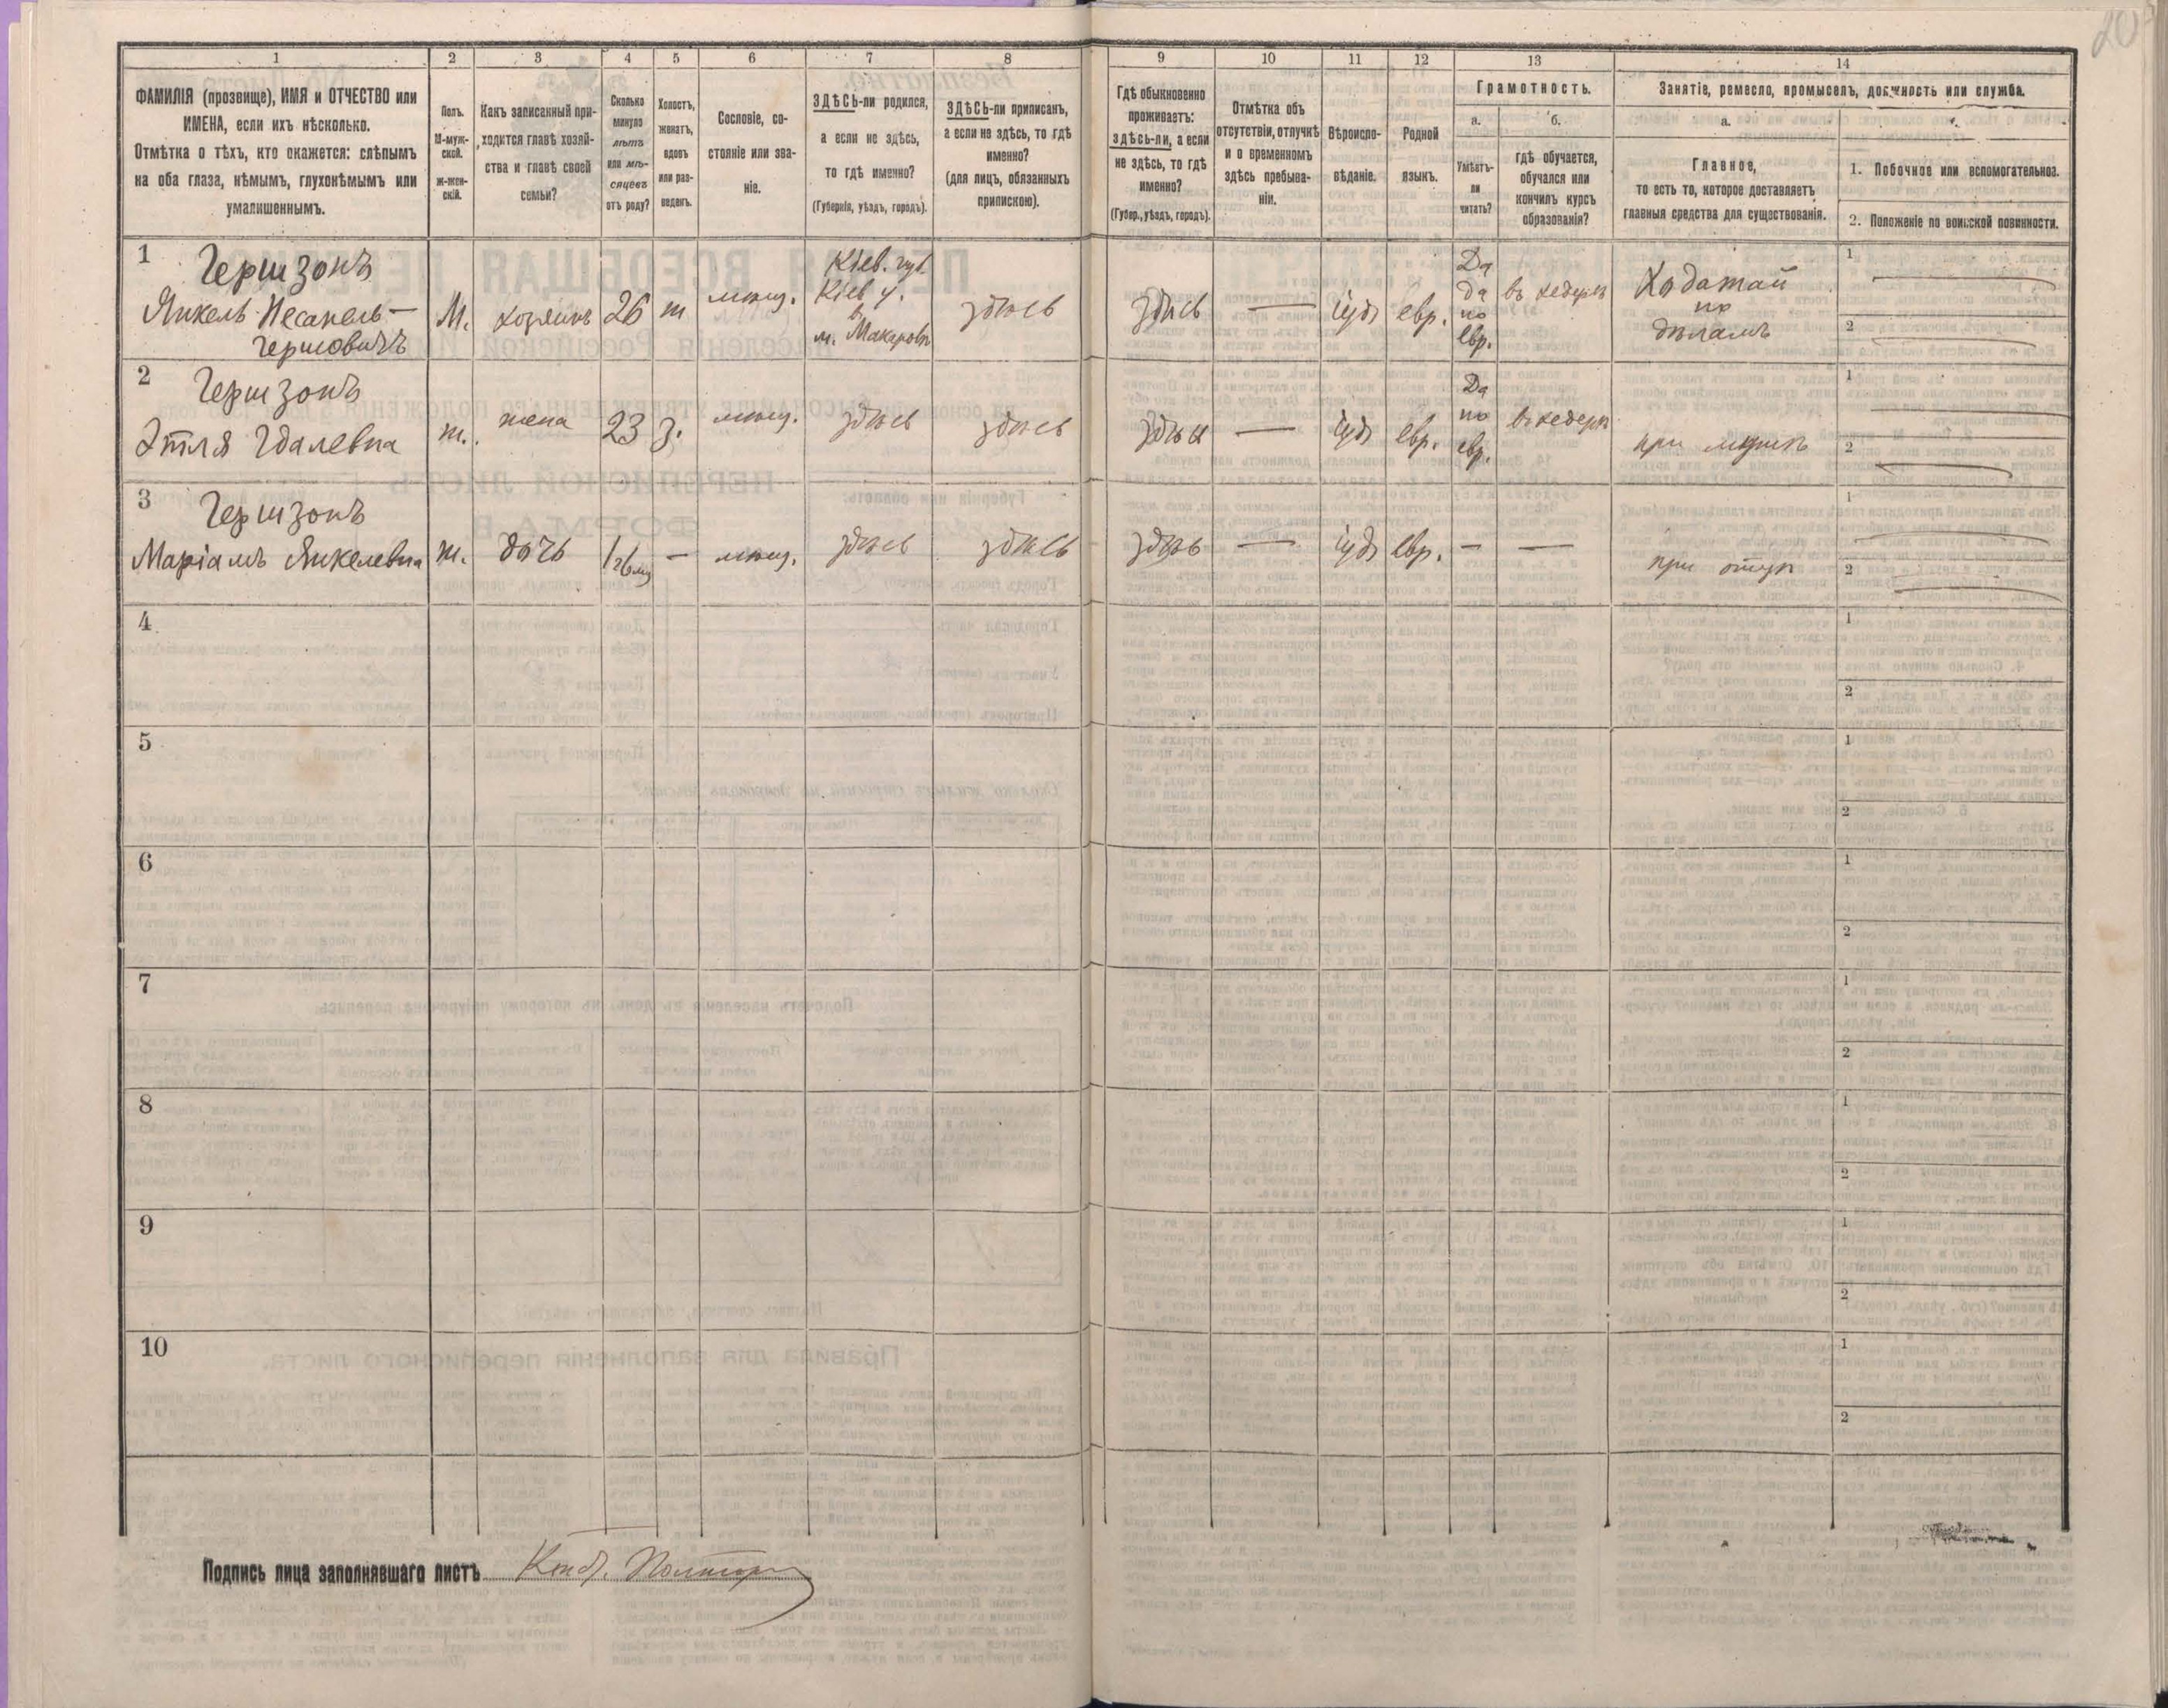 20
1 2 3 4 5 6 7 8 9 10 11 12 13 14
ФАМИЛІЯ (прозвище), ИМЯ и ОТЧЕСТВО или
ИМЕНА, если ихъ нѣсколько.
Отмѣтка о тѣхъ, кто окажется: слѣпымъ
на оба глаза, нѣмымъ, глухонѣмымъ или
умалишеннымъ.
Полъ.
М-муж-
ской.
ж-жен-
скій.
Какъ записанный при-
ходится главѣ хозяй-
ства и главѣ своей
семьи?
Сколько
минуло
лѣтъ
или мѣ-
сяцевъ
отъ роду?
Холостъ,
женатъ,
вдовъ
или раз-
веденъ.
Сословіе, со-
стояніе или зва-
ніе.
ЗДѢСЬ-ли родился,
а если не здѣсь,
то гдѣ именно?
(Губернія, уѣздъ, городъ).
ЗДѢСЬ-ли приписанъ,
а если не здѣсь, то гдѣ
именно?
(для лицъ, обязанныхъ
припискою).
Гдѣ обыкновенно
проживаетъ:
здѣсь-ли, а если
не здѣсь, то гдѣ
именно?
(Губер., уѣздъ, городъ).
Отмѣтка объ
отсутствіи, отлучкѣ
и о временномъ
здѣсь пребыва-
ніи.
Вѣроиспо-
вѣданіе.
Родной
языкъ.
Грамотность.
а.
Умѣетъ-
ли
читать?
б.
гдѣ обучается,
обучался или
кончилъ курсъ
образованія?
Занятіе, ремесло, промыселъ, должность или служба.
а.
Главное,
то есть то, которое доставляетъ
главныя средства для существованія.
1. Побочное или вспомогательное.
2. Положеніе по воинской повинности.
1 Гершзонъ
Янкель Песахель-
Гершовичъ
М. хозяинъ 26 ж мѣщ.
Кіев. губ.
Кіев. у.
в
м. Макаровѣ
здѣсь здѣсь — іуд евр.
Да
да
по
евр.
въ хедерѣ
Ходатай
по
дѣламъ
1 —
2 —
2 Гершзонъ
Этля Гдалевна
ж. жена 23 з. мѣщ. здѣсь здѣсь здѣсь — іуд евр.
Да
по
евр.
въ хедерѣ
при мужѣ
1 —
2 —
3 Гершзонъ
Маріамъ Янкелевна
ж. дочь — мѣщ. здѣсь здѣсь здѣсь — іуд евр. — —
при отцѣ
1 —
2 —
4 1
2
5 1
2
6 1
2
7 1
2
8 1
2
9 1
2
10 1
2
Подпись лица заполнявшаго листъ